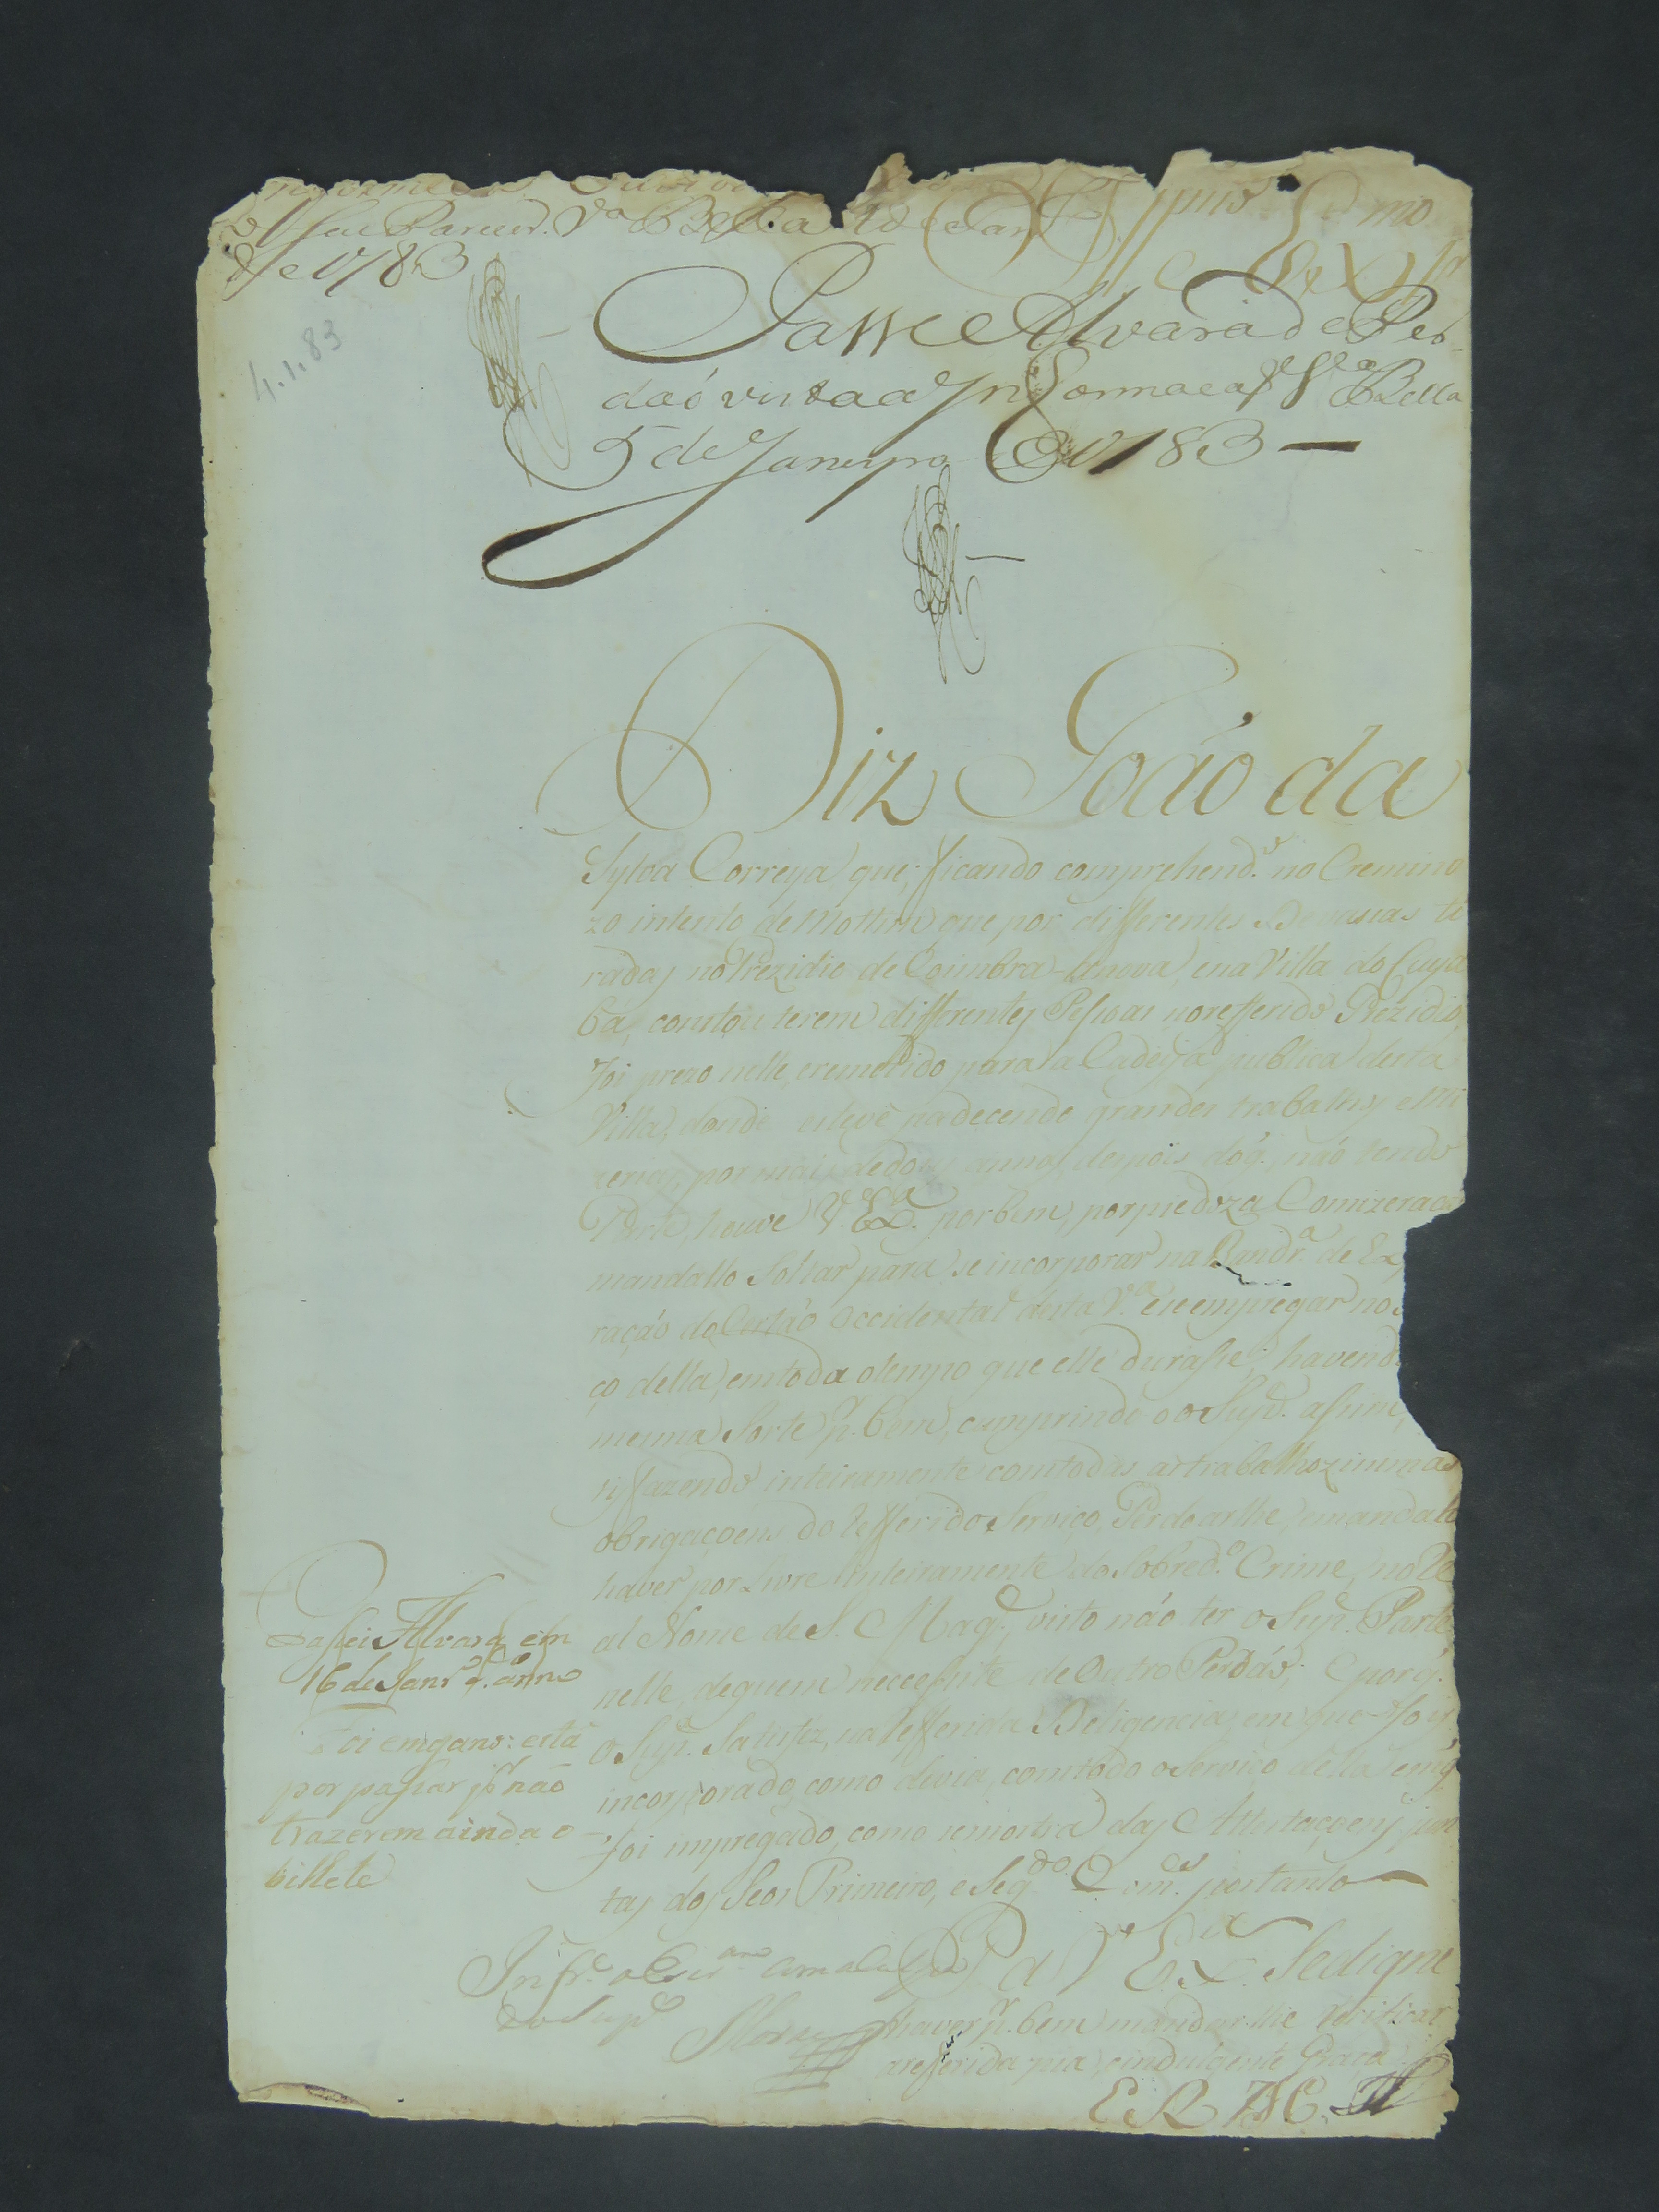 seu Parecer. Va Bella 4 de Janro
de 1783
Illmo e Exmo Sr
4.1.83
Passe Alvará de Per-
daó vista a Informacaõ Va Bella
5 de Janeyro de 1783 —
Diz Joáo da
Sylva Correya que, ficando comprehendo no Cremino
zo intento de Mottim que por differentes Devassas ti
radas no Prezidio de Coimbra-a nova, e na Villa do Cuya
bá, constou terem differentes Pessoas no refferido Prezidio,
foi prezo nelle, e remetido para a Cadeya publica desta
Villa, donde esteve padecendo grandes trabalhos e mi
zerias, por mais de dous annos, depois do q. náo tendo
Parte, houve V. Exa. por bem, por piedoza Comizeraçáo
mandallo Soltar para se incorporar na Bandra de Ex
raçáo do Certáo Occidental desta Va. e se empregar no
ço della, em todo o tempo que elle durasse; havend
mesma Sorte pr. bem, comprindo o o Supe. assim,
tisfazendo inteiramente com todas as trabalhozissimas
obrigaçoens do refferido Serviço, Perdoarlhe, e mandalo
haver por Livre inteiramente do Sobredo. Crime, no Re
al Nome de S. Mage., visto náo ter o Supe. Parte
nelle, de quem neceessite de Outro Perdáo; E porq.
o Supe. Satisfez, na refferida Deligencia, em que foi
incorporado, como devia, com todo o Serviço della em q.
foi empregado, como se mostra das Attestaçoens jun
tas dos Seos Primeiro, e Segdo. Comes. portanto —
Passei Alvará em
16 de Janro d. anno
Foi engano: está
por passar pr náo
trazerem ainda o
bilhete
P. a V. Exa. Se digne
haver pr. bem mandarlhe verificar
a referida pia, e indulgente Graça.
Infe. o Esram com a culpa
do Supe
E. R. M.ce